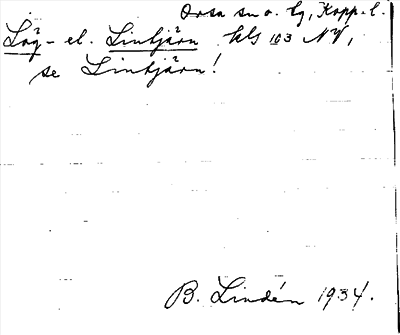 Orsa sn o. tg, Kopp. l.
Låg- el. Lintjärn kls 103 NV,
se Lintjärn!
B. Lindén 1934.